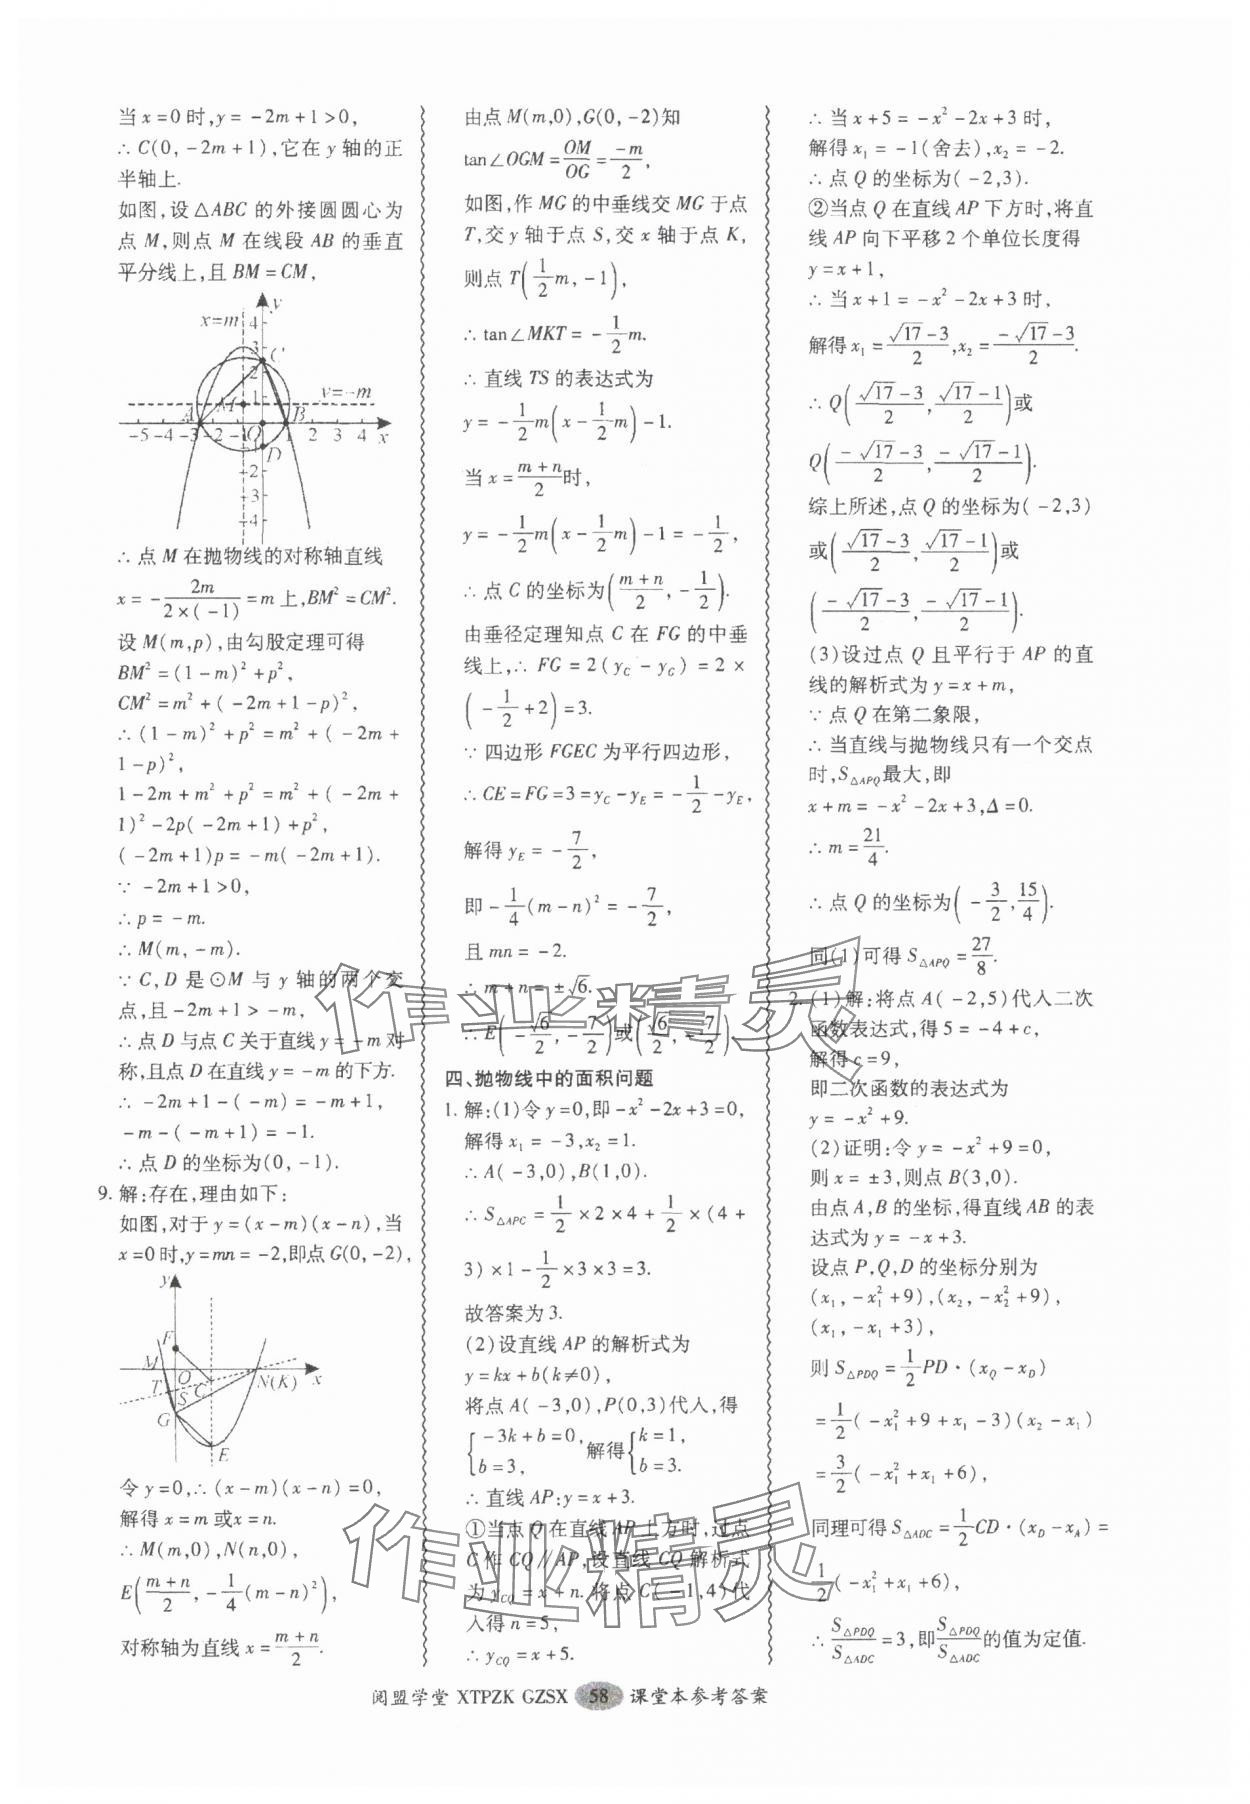 当 x=0 时,y= -2m+1>0,
∴ C(0, -2m+1),它在 y 轴的正
半轴上.
如图,设△ABC 的外接圆圆心为
点 M,则点 M 在线段 AB 的垂直
平分线上,且 BM=CM,
y
x=m
4
3
2
1
C
y=-m
M
A
B
-5 -4 -3 -2 -1 O 1 2 3 4 x
-1
D
-2
-3
-4
∴ 点 M 在抛物线的对称轴直线
x = - 2m/(2×(-1)) = m 上,BM²=CM².
设 M(m,p),由勾股定理可得
BM²=(1-m)²+p²,
CM²=m²+(-2m+1-p)²,
∴ (1-m)²+p²=m²+(-2m+
1-p)²,
1-2m+m²+p²=m²+(-2m+
1)²-2p(-2m+1)+p²,
(-2m+1)p= -m(-2m+1).
∵ -2m+1>0,
∴ p= -m.
∴ M(m, -m).
∵ C,D 是⊙M 与 y 轴的两个交
点,且 -2m+1> -m,
∴ 点 D 与点 C 关于直线 y= -m 对
称,且点 D 在直线 y= -m 的下方.
∴ -2m+1-(-m)= -m+1,
-m-(-m+1)= -1.
∴ 点 D 的坐标为(0, -1).
9. 解:存在,理由如下:
如图,对于 y=(x-m)(x-n),当
x=0 时,y=mn= -2,即点 G(0,-2),
y
F
M O N(K) x
T S C
G
E
令 y=0,∴ (x-m)(x-n)=0,
解得 x=m 或 x=n.
∴ M(m,0),N(n,0),
E((m+n)/2, -1/4(m-n)²),
对称轴为直线 x=(m+n)/2.
由点 M(m,0),G(0, -2)知
tan∠OGM=OM/OG=-m/2,
如图,作 MG 的中垂线交 MG 于点
T,交 y 轴于点 S,交 x 轴于点 K,
则点 T(1/2 m, -1),
∴ tan∠MKT= -1/2 m.
∴ 直线 TS 的表达式为
y= -1/2 m(x-1/2 m)-1.
当 x=(m+n)/2 时,
y= -1/2 m(x-1/2 m)-1= -1/2,
∴ 点 C 的坐标为((m+n)/2, -1/2).
由垂径定理知点 C 在 FG 的中垂
线上,∴ FG=2(y_C-y_G)=2×
(-1/2+2)=3.
∵ 四边形 FGEC 为平行四边形,
∴ CE=FG=3=y_C-y_E= -1/2-y_E,
解得 y_E= -7/2,
即 -1/4(m-n)²= -7/2,
且 mn= -2.
∴ m+n= ±√6.
∴ E(-√6/2, -7/2)或(√6/2, -7/2).
四、抛物线中的面积问题
1. 解:(1)令 y=0,即 -x²-2x+3=0,
解得 x₁= -3,x₂=1.
∴ A(-3,0),B(1,0).
∴ S△APC=1/2×2×4+1/2×(4+
3)×1-1/2×3×3=3.
故答案为 3.
(2)设直线 AP 的解析式为
y=kx+b(k≠0),
将点 A(-3,0),P(0,3)代入,得
{-3k+b=0, b=3, 解得{k=1, b=3.
∴ 直线 AP:y=x+3.
①当点 Q 在直线 AP 上方时,过点
C 作 CQ∥AP,设直线 CQ 解析式
为 y_CQ=x+n. 将点 C(-1,4)代
入得 n=5,
∴ y_CQ=x+5.
∴ 当 x+5= -x²-2x+3 时,
解得 x₁= -1(舍去),x₂= -2.
∴ 点 Q 的坐标为(-2,3).
②当点 Q 在直线 AP 下方时,将直
线 AP 向下平移 2 个单位长度得
y=x+1,
∴ 当 x+1= -x²-2x+3 时,
解得 x₁=(√17-3)/2,x₂=(-√17-3)/2.
∴ Q((√17-3)/2,(√17-1)/2)或
Q((-√17-3)/2,(-√17-1)/2).
综上所述,点 Q 的坐标为(-2,3)
或((√17-3)/2,(√17-1)/2)或
((-√17-3)/2,(-√17-1)/2).
(3)设过点 Q 且平行于 AP 的直
线的解析式为 y=x+m,
∵ 点 Q 在第二象限,
∴ 当直线与抛物线只有一个交点
时,S△APQ最大,即
x+m= -x²-2x+3,Δ=0.
∴ m=21/4.
∴ 点 Q 的坐标为(-3/2,15/4).
同(1)可得 S△APQ=27/8.
2. (1)解:将点 A(-2,5)代入二次
函数表达式,得 5= -4+c,
解得 c=9,
即二次函数的表达式为
y= -x²+9.
(2)证明:令 y= -x²+9=0,
则 x= ±3,则点 B(3,0).
由点 A,B 的坐标,得直线 AB 的表
达式为 y= -x+3.
设点 P,Q,D 的坐标分别为
(x₁, -x₁²+9),(x₂, -x₂²+9),
(x₁, -x₁+3),
则 S△PDQ=1/2 PD·(x_Q-x_D)
=1/2(-x₁²+9+x₁-3)(x₂-x₁)
=3/2(-x₁²+x₁+6),
同理可得 S△ADC=1/2 CD·(x_D-x_A)=
1/2(-x₁²+x₁+6),
∴ S△PDQ/S△ADC=3,即 S△PDQ/S△ADC 的值为定值.
阅盟学堂 XTPZK GZSX 58 课堂本参考答案
作业精灵
作业精灵